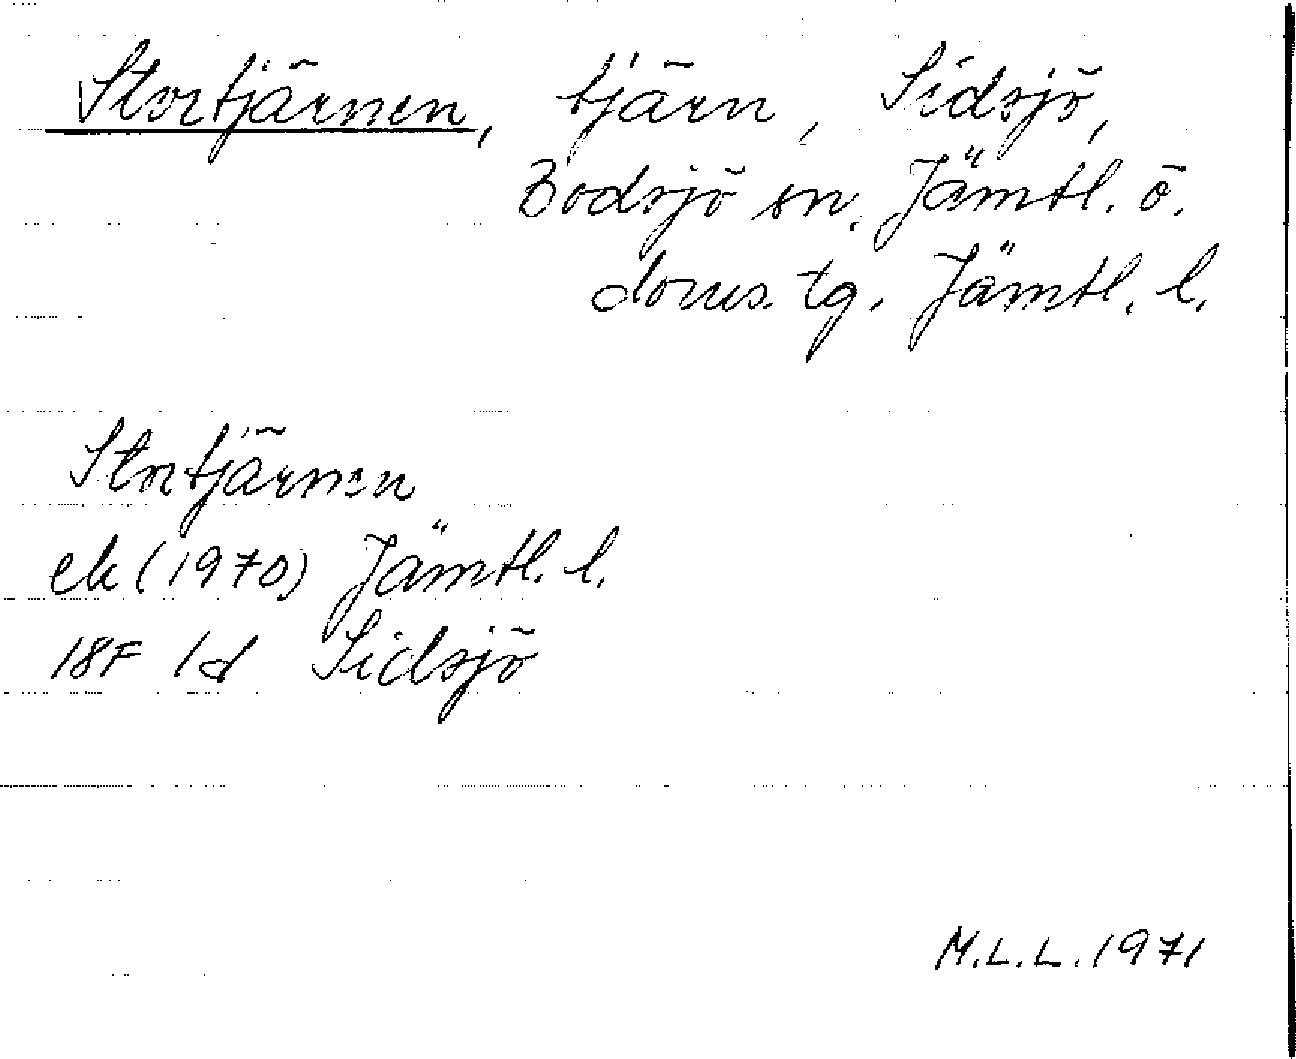 Stortjärnen, tjärn, Sidsjö,
Bodsjö sn. Jämtl. ö.
doms. tg. Jämtl. l.
Stortjärnen
ek (1970) Jämtl. l.
18F 1d Sidsjö
M.L.L. 1971